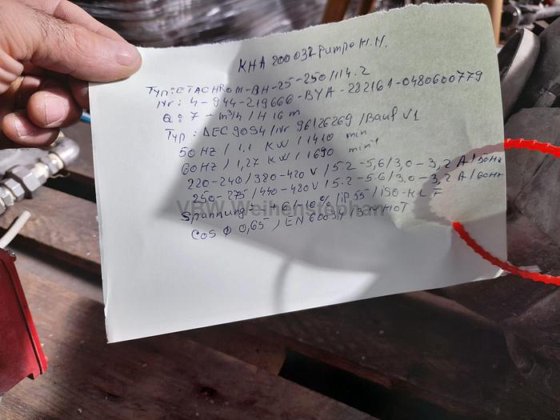 KHA 200032 Pumpe H.H.
Typ: ETACHROM-BH-25-250/114.2
Nr: 4-944-219666-BYA-282161-0480600779
Q: 7 - m³/h / H 16 m
Typ: AEC 90S4 / Nr 96126269 / Bauf V1
50 Hz / 1,1 KW / 1410 min
60Hz / 1,27 KW / 1690 min⁻¹
220-240/380-420 V / 5.2-5,6/3,0-3,2 A / 50Hz
250-275/440-480V / 5.2-5,6/3,0-3,2 A / 60Hz
Spannung: +6/-10% / IP 55 / ISO-KL F
Cos φ 0,65 / EN 60034
VBW Weihenstephan